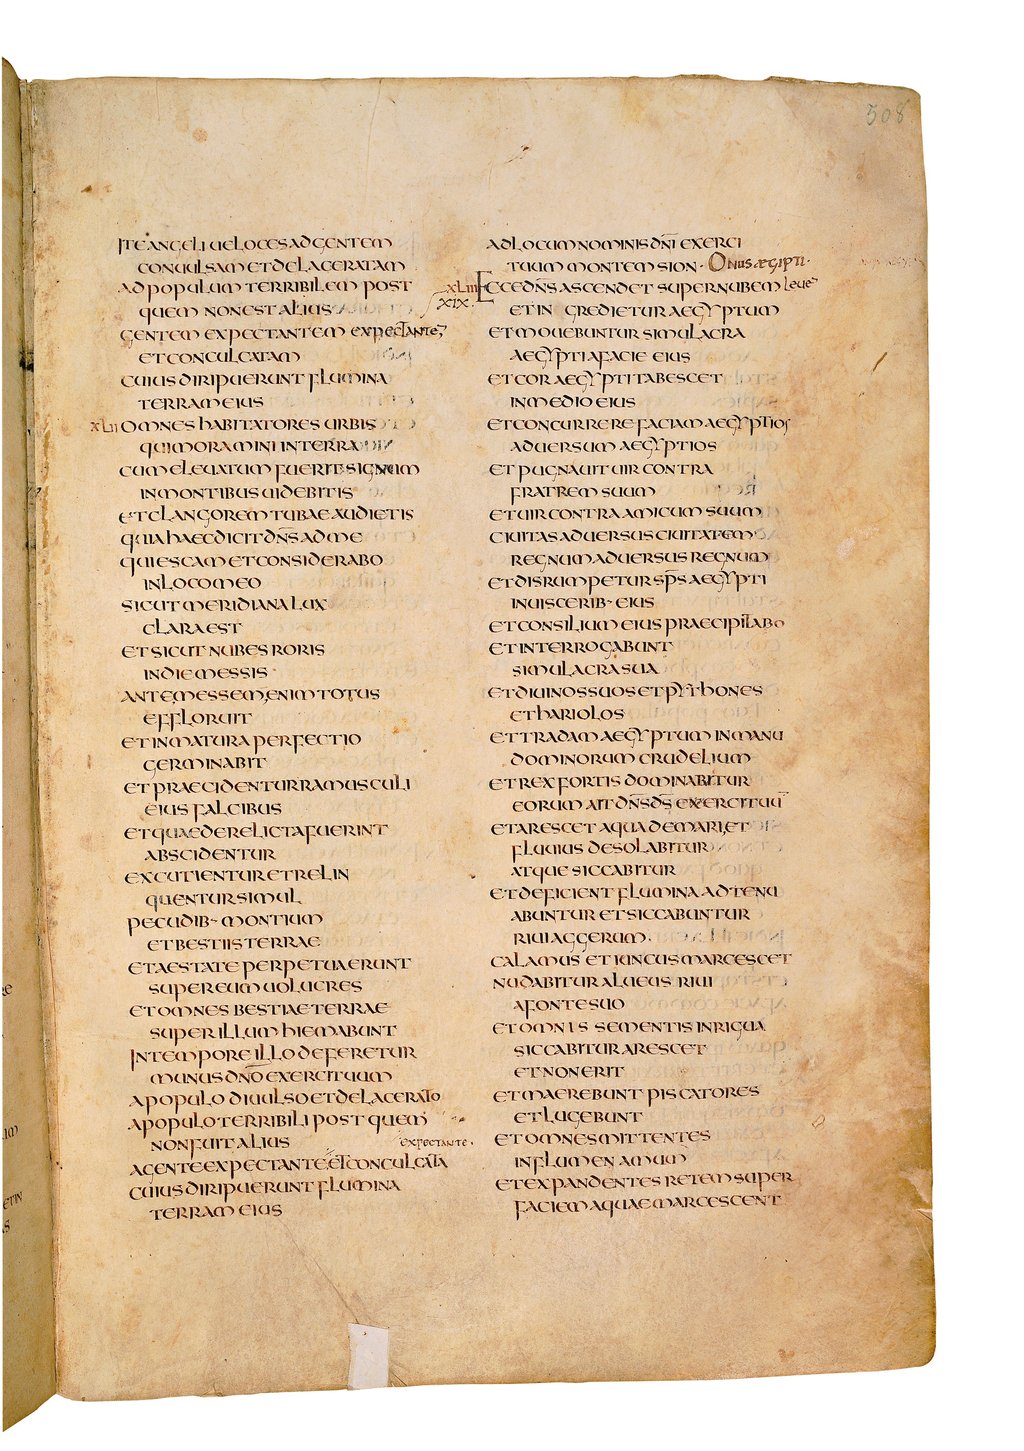 508
ITE ANGELI UELOCES AD GENTEM
CONUULSAM ET DELACERATAM
AD POPULUM TERRIBILEM POST
QUEM NON EST ALIUS
GENTEM EXPECTANTEM EXPECTANTE
ET CONCULCATAM
CUIUS DIRIPUERUNT FLUMINA
TERRAM EIUS
XLII OMNES HABITATORES URBIS
QUI MORAMINI IN TERRA
CUM ELEUATUM FUERIT SIGNUM
IN MONTIBUS UIDEBITIS
ET CLANGOREM TUBAE AUDIETIS
QUIA HAEC DICIT DN̅S AD ME
QUIESCAM ET CONSIDERABO
IN LOCO MEO
SICUT MERIDIANA LUX
CLARA EST
ET SICUT NUBES RORIS
IN DIE MESSIS
ANTE MESSEM ENIM TOTUS
EFFLORUIT
ET INMATURA PERFECTIO
GERMINABIT
ET PRAECIDENTUR RAMUSCULI
EIUS FALCIBUS
ET QUAE DERELICTA FUERINT
ABSCIDENTUR
EXCUTIENTUR ET RELIN
QUENTUR SIMUL
PECUDIB· MONTIUM
ET BESTIIS TERRAE
ET AESTATE PERPETUA ERUNT
SUPER EUM UOLUCRES
ET OMNES BESTIAE TERRAE
SUPER ILLUM HIEMABUNT
IN TEMPORE ILLO DEFERETUR
MUNUS DN̅O EXERCITUUM
A POPULO DIUULSO ET DELACERATO
A POPULO TERRIBILI POST QUEM
NON FUIT ALIUS
EXPECTANTE·
A GENTE EXPECTANTE ET CONCULCATA
CUIUS DIRIPUERUNT FLUMINA
TERRAM EIUS
AD LOCUM NOMINIS DN̅I EXERCI
TUUM MONTEM SION· ONUS AEGIPTI·
XLIII ECCE DN̅S ASCENDET SUPER NUBEM LEUE̅
XIX· ET INGREDIETUR AEGYPTUM
ET MOUEBUNTUR SIMULACRA
AEGYPTI A FACIE EIUS
ET COR AEGYPTI TABESCET
IN MEDIO EIUS
ET CONCURRERE FACIAM AEGYPTIOS
ADUERSUM AEGYPTIOS
ET PUGNAUIT UIR CONTRA
FRATREM SUUM
ET UIR CONTRA AMICUM SUUM
CIUITAS ADUERSUS CIUITATEM
REGNUM ADUERSUS REGNUM
ET DISRUMPETUR SP̅S AEGYPTI
IN UISCERIB· EIUS
ET CONSILIUM EIUS PRAECIPITABO
ET INTERROGABUNT
SIMULACRA SUA
ET DIUINOS SUOS ET PYTHONES
ET HARIOLOS
ET TRADAM AEGYPTUM IN MANU
DOMINORUM CRUDELIUM
ET REX FORTIS DOMINABITUR
EORUM AIT DN̅S D̅S EXERCITUU̅
ET ARESCET AQUA DE MARI ET
FLUUIUS DESOLABITUR
ATQUE SICCABITUR
ET DEFICIENT FLUMINA ADTENU
ABUNTUR ET SICCABUNTUR
RIUI AGGERUM·
CALAMUS ET IUNCUS MARCESCET
NUDABITUR ALUEUS RIUI
A FONTE SUO
ET OMNIS SEMENTIS INRIGUA
SICCABITUR ARESCET
ET NON ERIT
ET MAEREBUNT PISCATORES
ET LUGEBUNT
ET OMNES MITTENTES
IN FLUMEN AMUM
ET EXPANDENTES RETEM SUPER
FACIEM AQUAE MARCESCENT